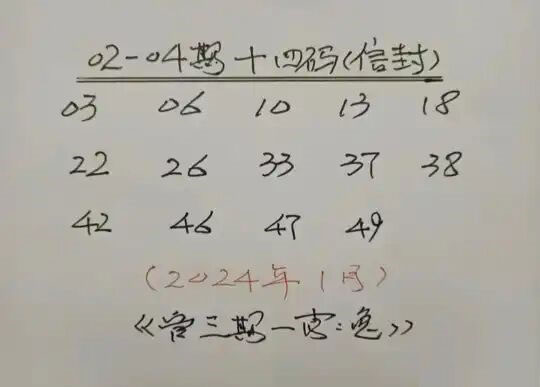 02-04期十四码(信封)
03 06 10 13 18
22 26 33 37 38
42 46 47 49
(2024年1月)
《管三期一肖:兔》